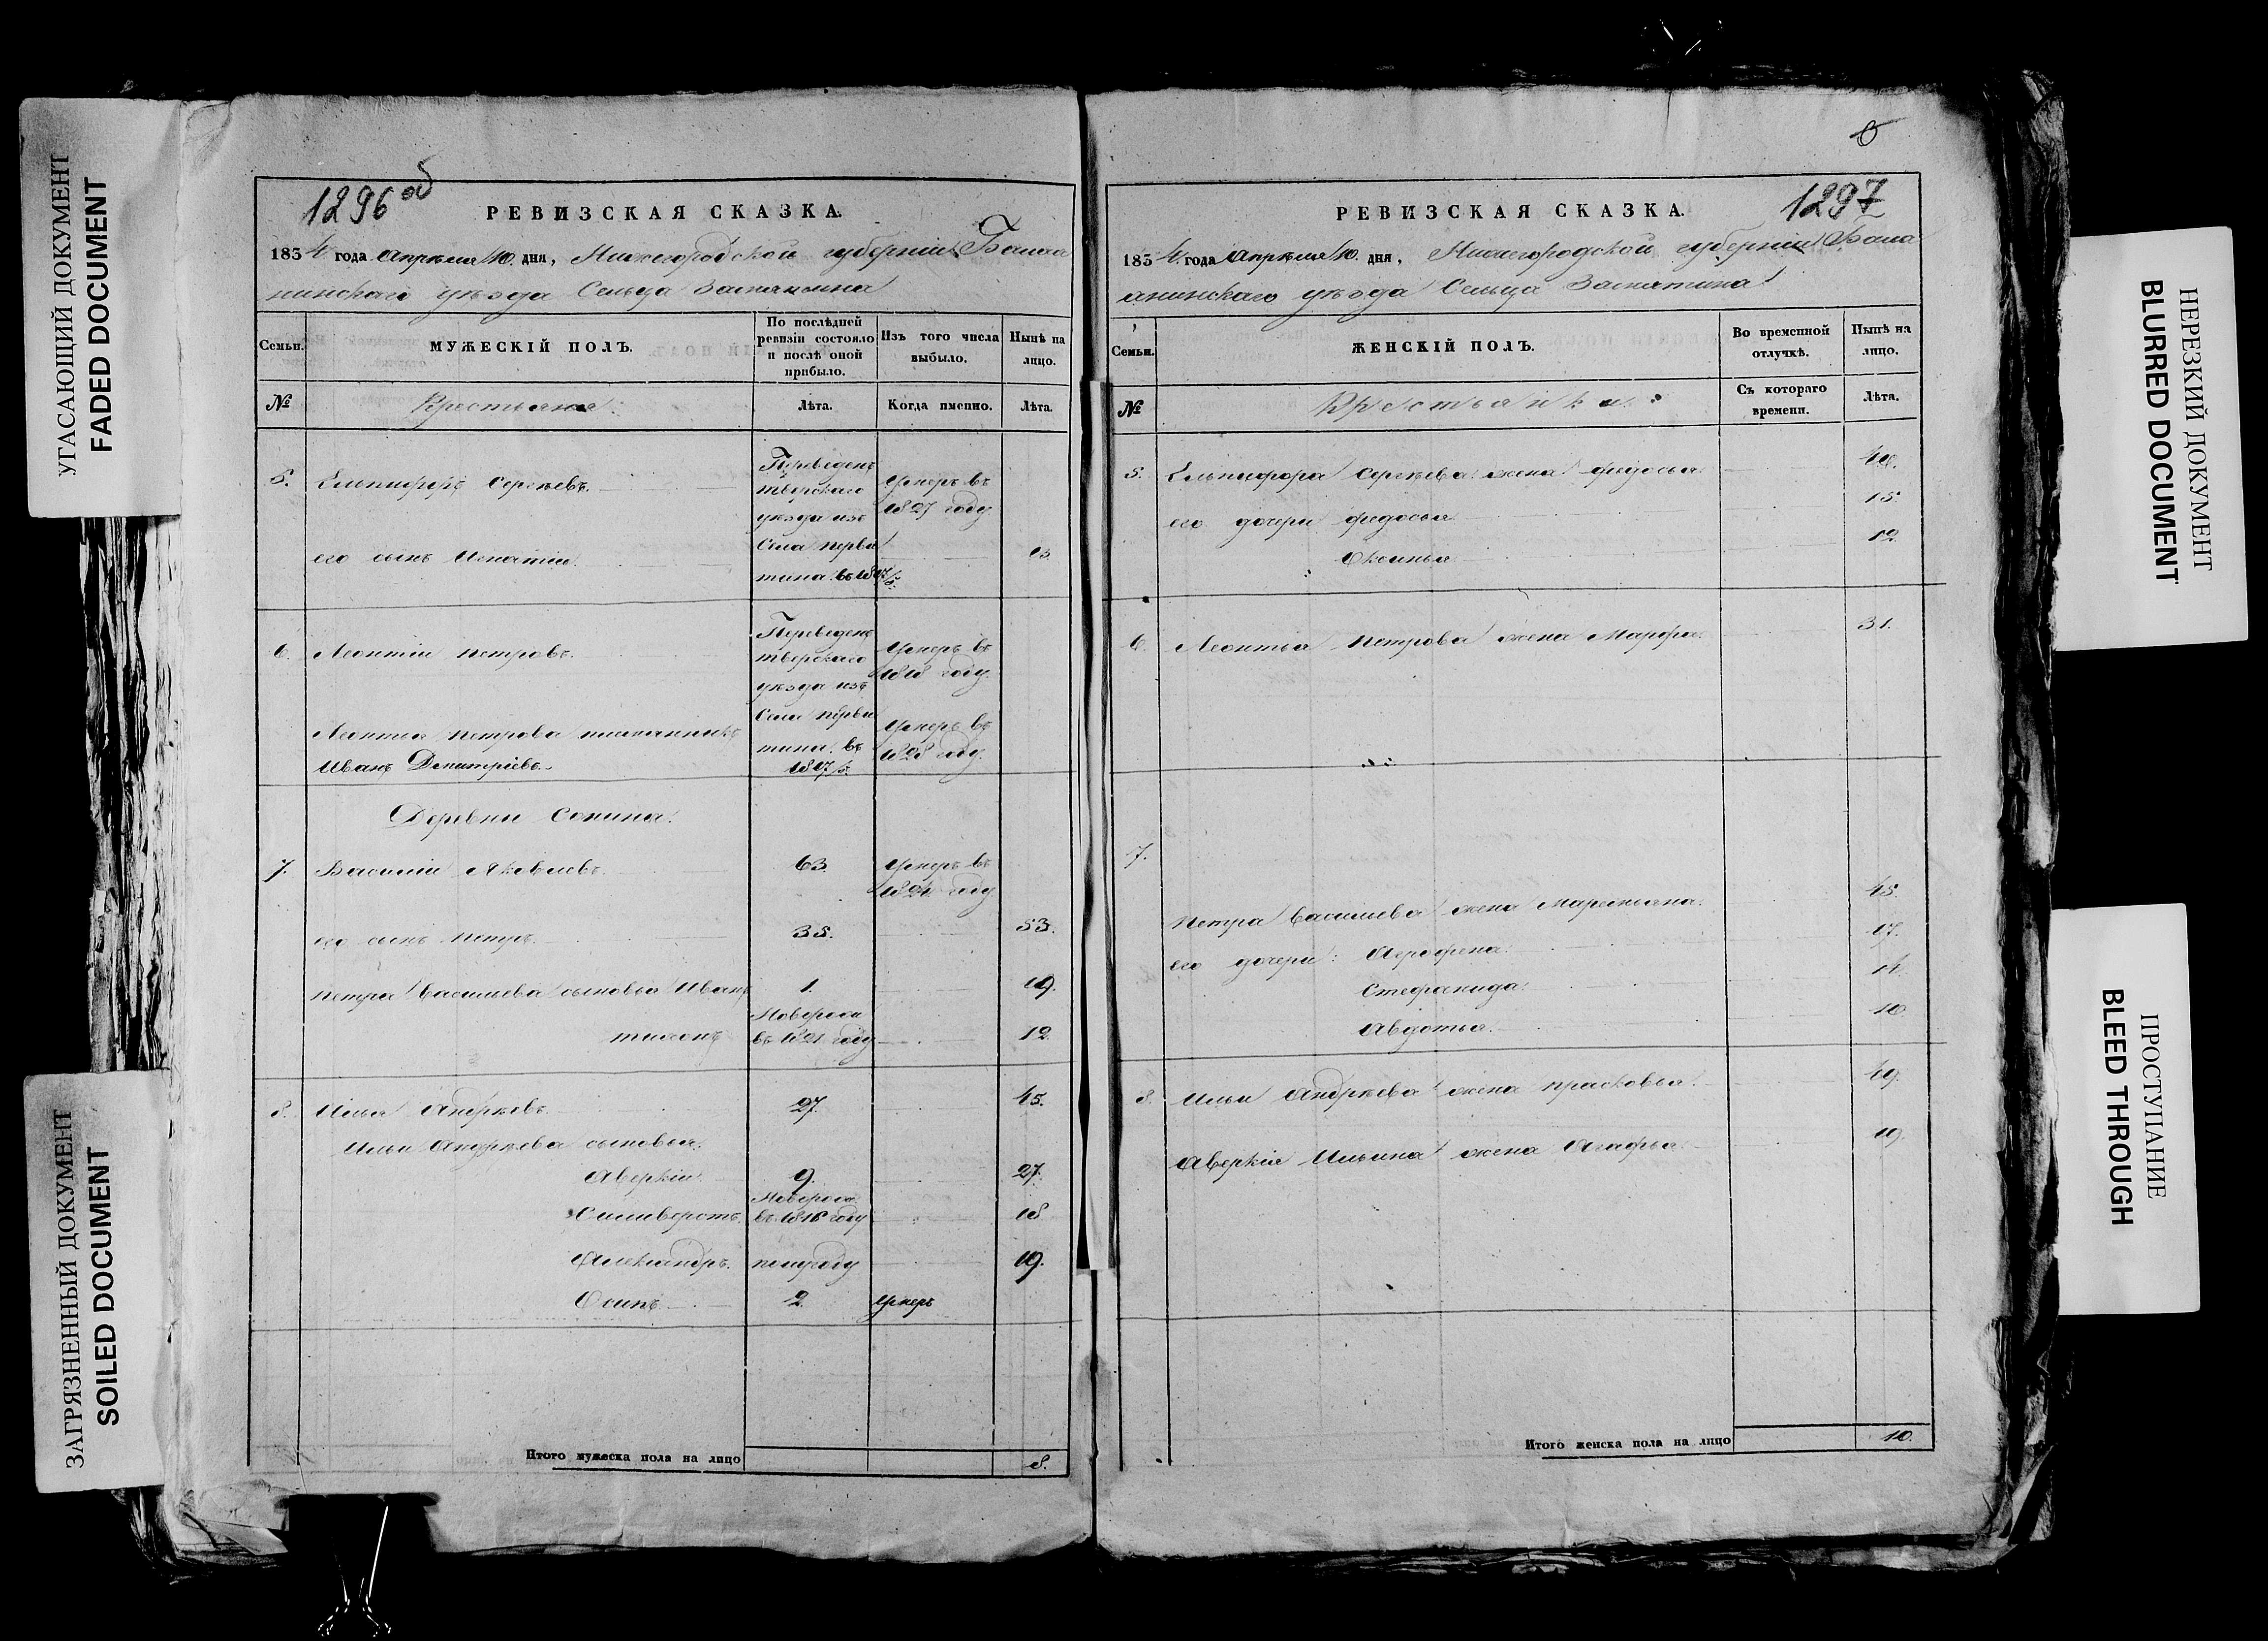 УГАСАЮЩИЙ ДОКУМЕНТ
FADED DOCUMENT
ЗАГРЯЗНЕННЫЙ ДОКУМЕНТ
SOILED DOCUMENT
1296 об
РЕВИЗСКАЯ СКАЗКА.
1834 года Апреля 10. дня, Нижегородской губернiи Бала
хнинскаго уѣзда Сельца
Семьи. МУЖЕСКIЙ ПОЛЪ. По послѣдней ревизiи состояло и послѣ оной прибыло. Изъ того числа выбыло. Нынѣ на лицо.
№ Крестьяне: Лѣта. Когда именно. Лѣта.
5. Ельпифоръ Сергѣевъ. Переведенъ тверскаго уѣзда изъ умеръ въ 1827 году
его сынъ Игнатiй. Села перви тина въ
6. Леонтiй петровъ. Переведенъ тверскаго уѣзда изъ умеръ въ 1818 году.
Леонтья петрова племянникъ Села перви умеръ въ
Иванъ Дмитрiевъ. тина въ 1828 году.
Деревни Сокина.
7. Василiй Яковлевъ. 63. умеръ въ
1824 году
его сынъ петръ. 35. 53.
петра васильева сыновья Иванъ 1. 19.
тихонъ Новорож. въ 1821 году 12.
8. Илья Андрѣевъ. 27. 45.
Ильи Андрѣева сыновья:
Аверкiй. 9. 27.
Силиверстъ. Новорож. въ 1816 году 18
Александръ. 19.
Осипъ. 2. умеръ
Итого мужеска пола на лицо 8.
6
1297
РЕВИЗСКАЯ СКАЗКА.
1834 года Апреля 10. дня, Нижегородской губернiи Бала
хнинскаго уѣзда Сельца
Семьи. ЖЕНСКIЙ ПОЛЪ. Во временной отлучкѣ. Нынѣ на лицо.
№ Крестьянки: Съ котораго времени. Лѣта.
5. Ельпифора Сергѣева жена федосья 40.
его дочери федосья 15
Оксинья 12.
6. Леонтья Петрова жена Марфа. 31.
7.
Петра Васильева жена Маремьяна. 45.
его дочери: Агрофена. 17.
Стефанида. 14.
Авдотья. 10
8. Ильи Андрѣева жена прасковья. 49.
Аверкiя Ильина жена Агафья. 19.
Итого женска пола на лицо 10.
НЕРЕЗКИЙ ДОКУМЕНТ
BLURRED DOCUMENT
ПРОСТУПАНИЕ
BLEED THROUGH